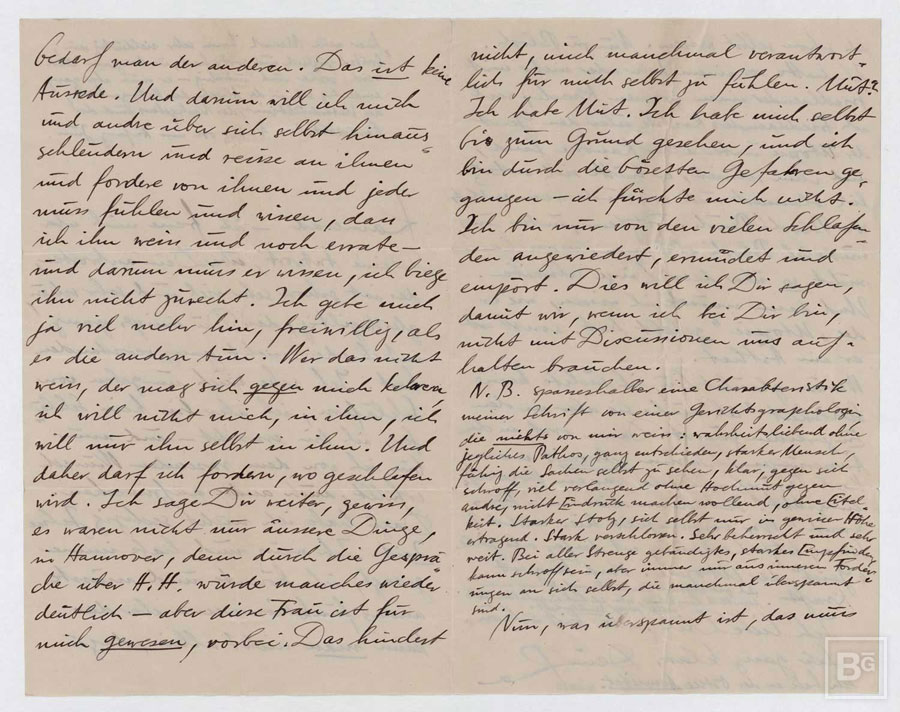 bedarf man der anderen. Das ist keine
Ausrede. Und darum will ich mich
und andre über sich selbst hinaus=
schleudern und reisse an ihnen
und fordere von ihnen und jeder
muss fühlen und wissen, dass
ich ihn weiss und noch errate –
und darum muss er wissen, ich biege
ihn nicht zurecht. Ich gebe mich
ja viel mehr hin, freiwillig, als
es die andern tun. Wer das nicht
weiss, der mag sich gegen mich kehren,
ich will nicht mich, in ihm, ich
will nur ihn selbst in ihm. Und
daher darf ich fordern, wo geschlafen
wird. Ich sage Dir weiter, gewiss,
es waren nicht nur äussere Dinge,
in Hannover, denn durch die Gesprä=
che über H. H. würde manches wieder
deutlich – aber diese Frau ist für
mich gewesen, vorbei. Das hindert
nicht, mich manchmal verantwort=
lich für mich selbst zu fühlen. Mut?
Ich habe Mut. Ich habe mich selbst
bis zum Grund gesehen, und ich
bin durch die bösesten Gefahren ge=
gangen – ich fürchte mich nicht.
Ich bin nur von den vielen Schlafen
den angewiedert, ermüdet und
empört. Dies will ich Dir sagen,
damit wir, wenn ich bei Dir bin,
nicht mit Discussionen uns auf=
halten brauchen.
N. B. spasseshalber eine Charakteristik
meiner Schrift von einer Gerichtsgraphologin
die nichts von mir weiss: wahrheitsliebend ohne
jegliches Pathos, ganz entschieden, starker Mensch,
fähig die Sachen selbst zu sehen, klar, gegen sich
schroff, viel verlangend ohne Hochmut gegen
andre, nicht Eindruck machen wollend, ohne Eitel
keit. Starker Stolz, sich selbst nur in gewisser Höhe
ertragend. Stark verschlossen. Sehr beherrscht und sehr
weit. Bei aller Strenge gebändigtes, starkes Empfinden,
kann schroff sein, aber immer nur aus inneren Forder=
ungen an sich selbst, die manchmal überspannt
sind.
Nun, was überspannt ist, das muss
BG